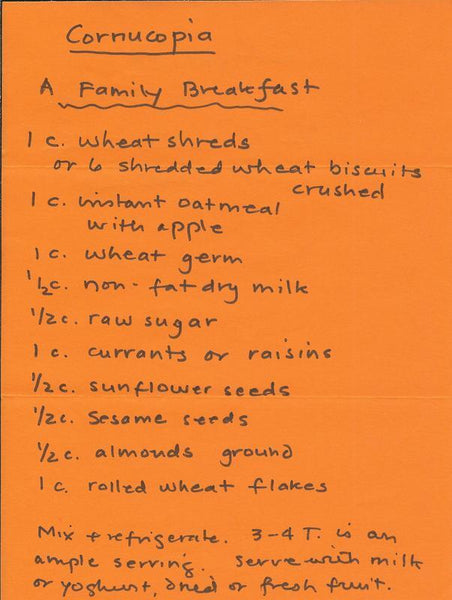 Cornucopia
A Family Breakfast
1 c. wheat shreds
or 6 shredded wheat biscuits
crushed
1 c. instant oatmeal
with apple
1 c. wheat germ
1/2 c. non-fat dry milk
1/2 c. raw sugar
1 c. currants or raisins
1/2 c. sunflower seeds
1/2 c. sesame seeds
1/2 c. almonds ground
1 c. rolled wheat flakes
Mix + refrigerate. 3-4 T. is an
ample serving. Serve with milk
or yoghurt, dried or fresh fruit.